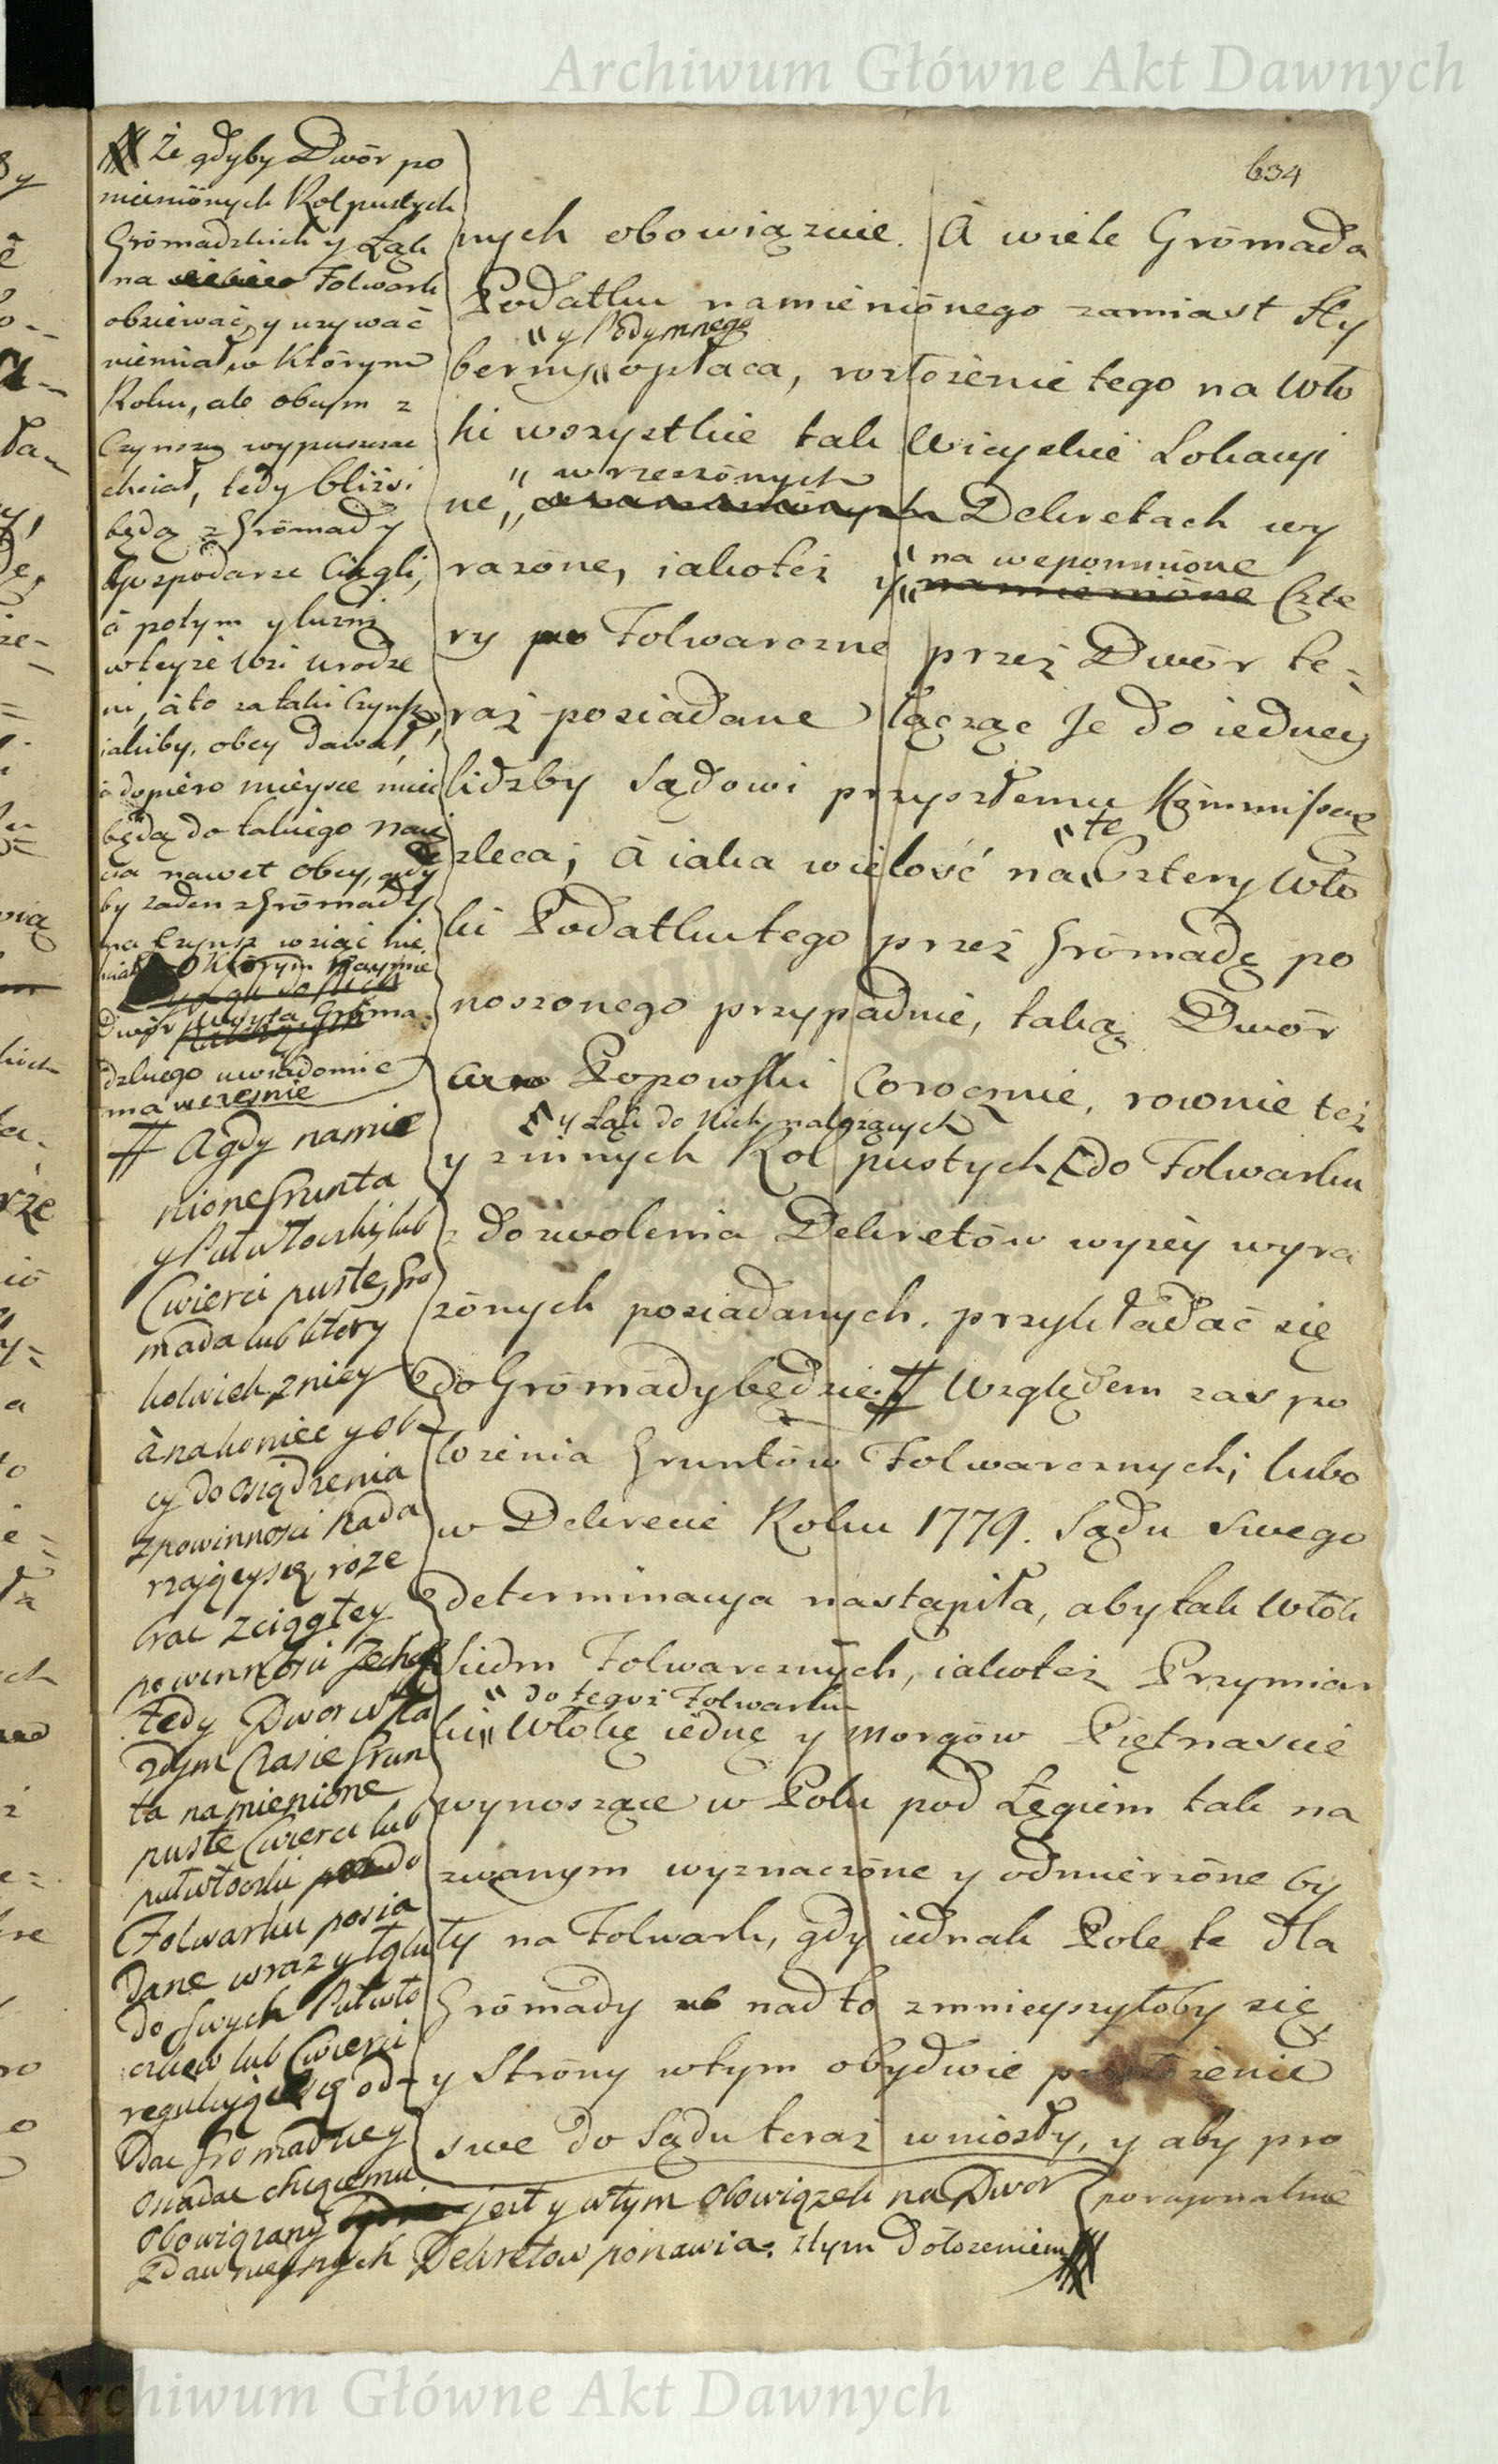 Archiwum Główne Akt Dawnych
634
Że gdyby Dwór po
mienionych Rol pustych
Gromadzkich y Łąk
na Folwark
obsiewać, y uzywać
niemiał w Ktorym
Roku, ale obcym z
Czynszu wypuszczać
chciał, tedy bliżsi
będą z Gromady
Gospodarze Ciągli,
à potym y luzni
w teyze Wsi urodze
ni, à to za taki Czynsz,
iakiby, obcy dawał,
à dopiero mieysce mieć
będą do takiego
nawet obcy, gdy
by zaden z Gromady
na Czynsz wziąć nie
chciał o Ktorym Naymie
Dwór Woyta Groma
dzkiego uwiadomić
ma wcześnie
# A gdy namie
nione Grunta
y Puł Włoczki, lub
Cwierci puste, Gro
mada lub ktory
kolwiek z niey
à nakoniec y ob
cy do osiądzenia
z powinnosci nada
rzaiący się, roze
brac z ciągłey
powinnosci zechce
tedy Dwor w ka
zdym Czasie Grun
ta namienione
puste Cwierci lub
pułwłoczki do
Folwarku posia
dane wraz y Łąki
do swych Pułwło
czkow lub Cwierci
reguluiące się od
dac Gromadzie y
osiadac chcącemu
obowiązany jest y w tym obowiązek na Dwor
z dawnieyszych Dekretow ponawia. z tym dołozeniem
nych obowiązuie. A wiele Gromada
Podatku namienionego zamiast Hy
" y Podymnego
berny " opłaca, rozłożenie tego na Wło
ki wszystkie tak Wieyskie Lokacyi
" w rzeczonych
ne, " Dekretach wy
razone, iakoteż y " na wspomnione
namienione Czte
ry Folwarczne przez Dwór te-
raz posiadane łącząc Je do iedney
lidzby Sądowi przyszłemu Kommissar
zleca; à iaka wielość na " te Cztery Wło
ki Podatku tego przez Gromadę po
noszonego przypadnie, taką Dwór
Popowski Corocznie, rownie też
y Łąk do Nich nalezących
y z innych Rol pustych do Folwarku
z dozwolenia Dekretów wyzey wyra
żónych posiadanych. przykładać się
do Gromady będzie. # Względem zas po
łozenia Gruntów Folwarcznych, lubo
w Dekrecie Roku 1779. Sądu swego
determinacya nastąpiła, aby tak Włók
siedm Folwarcznych, iakoteż Przymiar
" do tegoż Folwarku
ki " Włókę iednę y Morgów Piętnascie
wynoszące w Polu pod Łęgiem tak na
zwanym wyznaczóne y odmierzóne by
ły na Folwark, gdy iednak Pole te dla
Gromady nad to zmnieyszyłoby się,
y Strony w tym obydwie
swe do Sądu teraz wniosły, y aby pro
porcyonalnie
Archiwum Główne Akt Dawnych